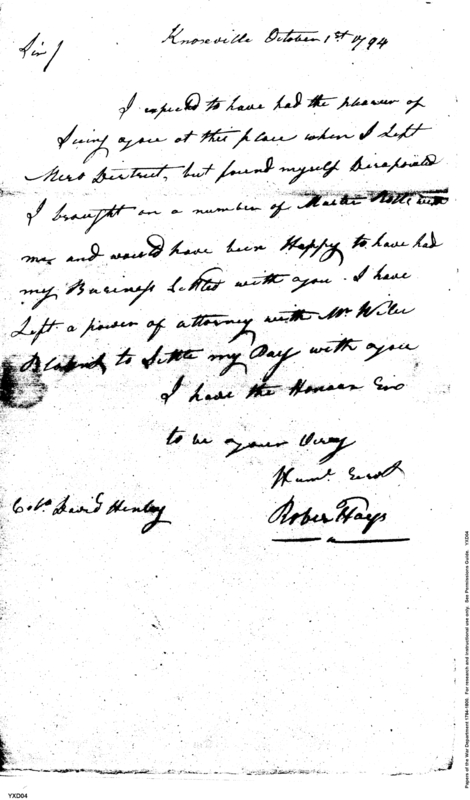 Knoxville October 1st 1794
Sir/
I expected to have had the pleasuer of
Seing youe at this place when I Left
Mero Destrect, but found myself Disapointed
I brought on a number of Muster Rolls with
me and would have been Happy to have had
my Buciness Settled with you. I have
Left a power of attorney with Mr Wilie
Blount to Settle my Pay with youe
I have the Honour
to be youer Very
Huml Servt
Colo David Henley
Rober Hays
Papers of the War Department 1784-1800. For research and instructional use only. See Permissions Guide. YXD04
YXD04